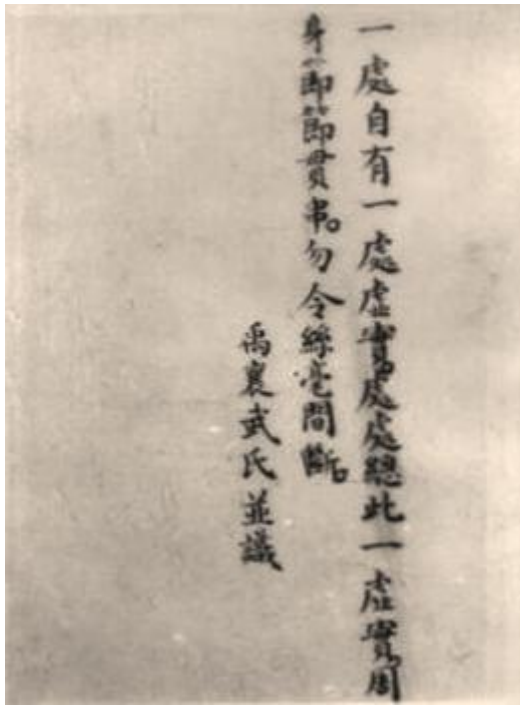 一處自有一處虛實處處總此一虛實周
身節節貫串。勿令絲毫間斷。
禹襄武氏並識